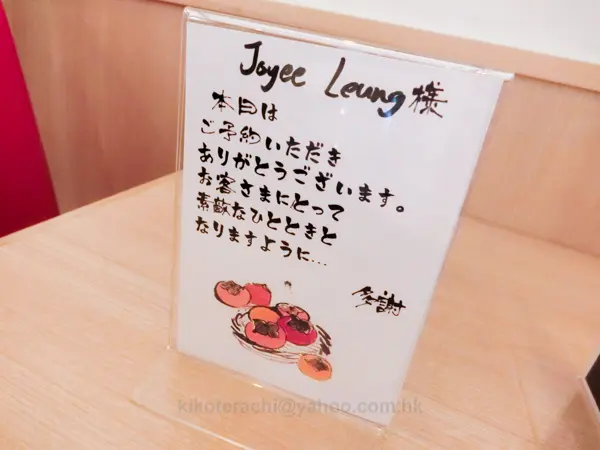 Joyee Leung 様
本日は
ご予約いただき
ありがとうございます。
お客さまにとって
素敵なひとときと
なりますように…
多謝
kikoterachi@yahoo.com.hk